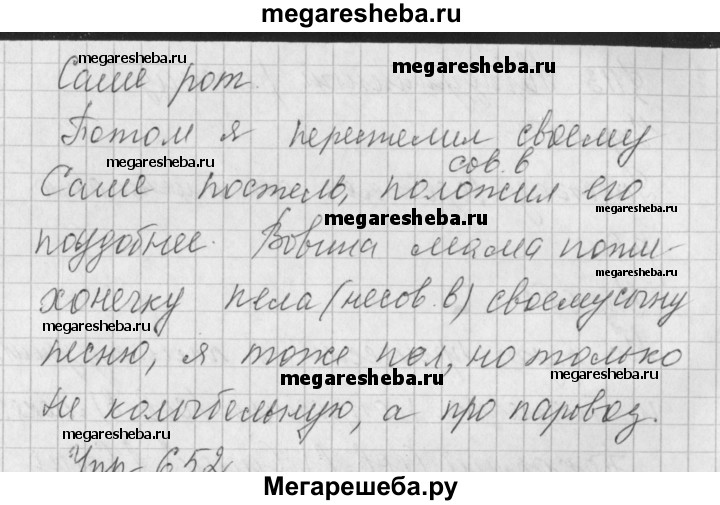 megaresheba.ru
megaresheba.ru
megaresheba.ru
Саше рот.
Потом я перестелил своему
megaresheba.ru
сов. в
Саше постель, положил его
megaresheba.ru
поудобнее. Вовина мама поти-
megaresheba.ru
хонечку пела (несов. в) своему сыну
megaresheba.ru
песню, я тоже пел, но только
megaresheba.ru
megaresheba.ru
не колыбельную, а про паровоз.
megaresheba.ru
Упр-652
Мегарешеба.ру